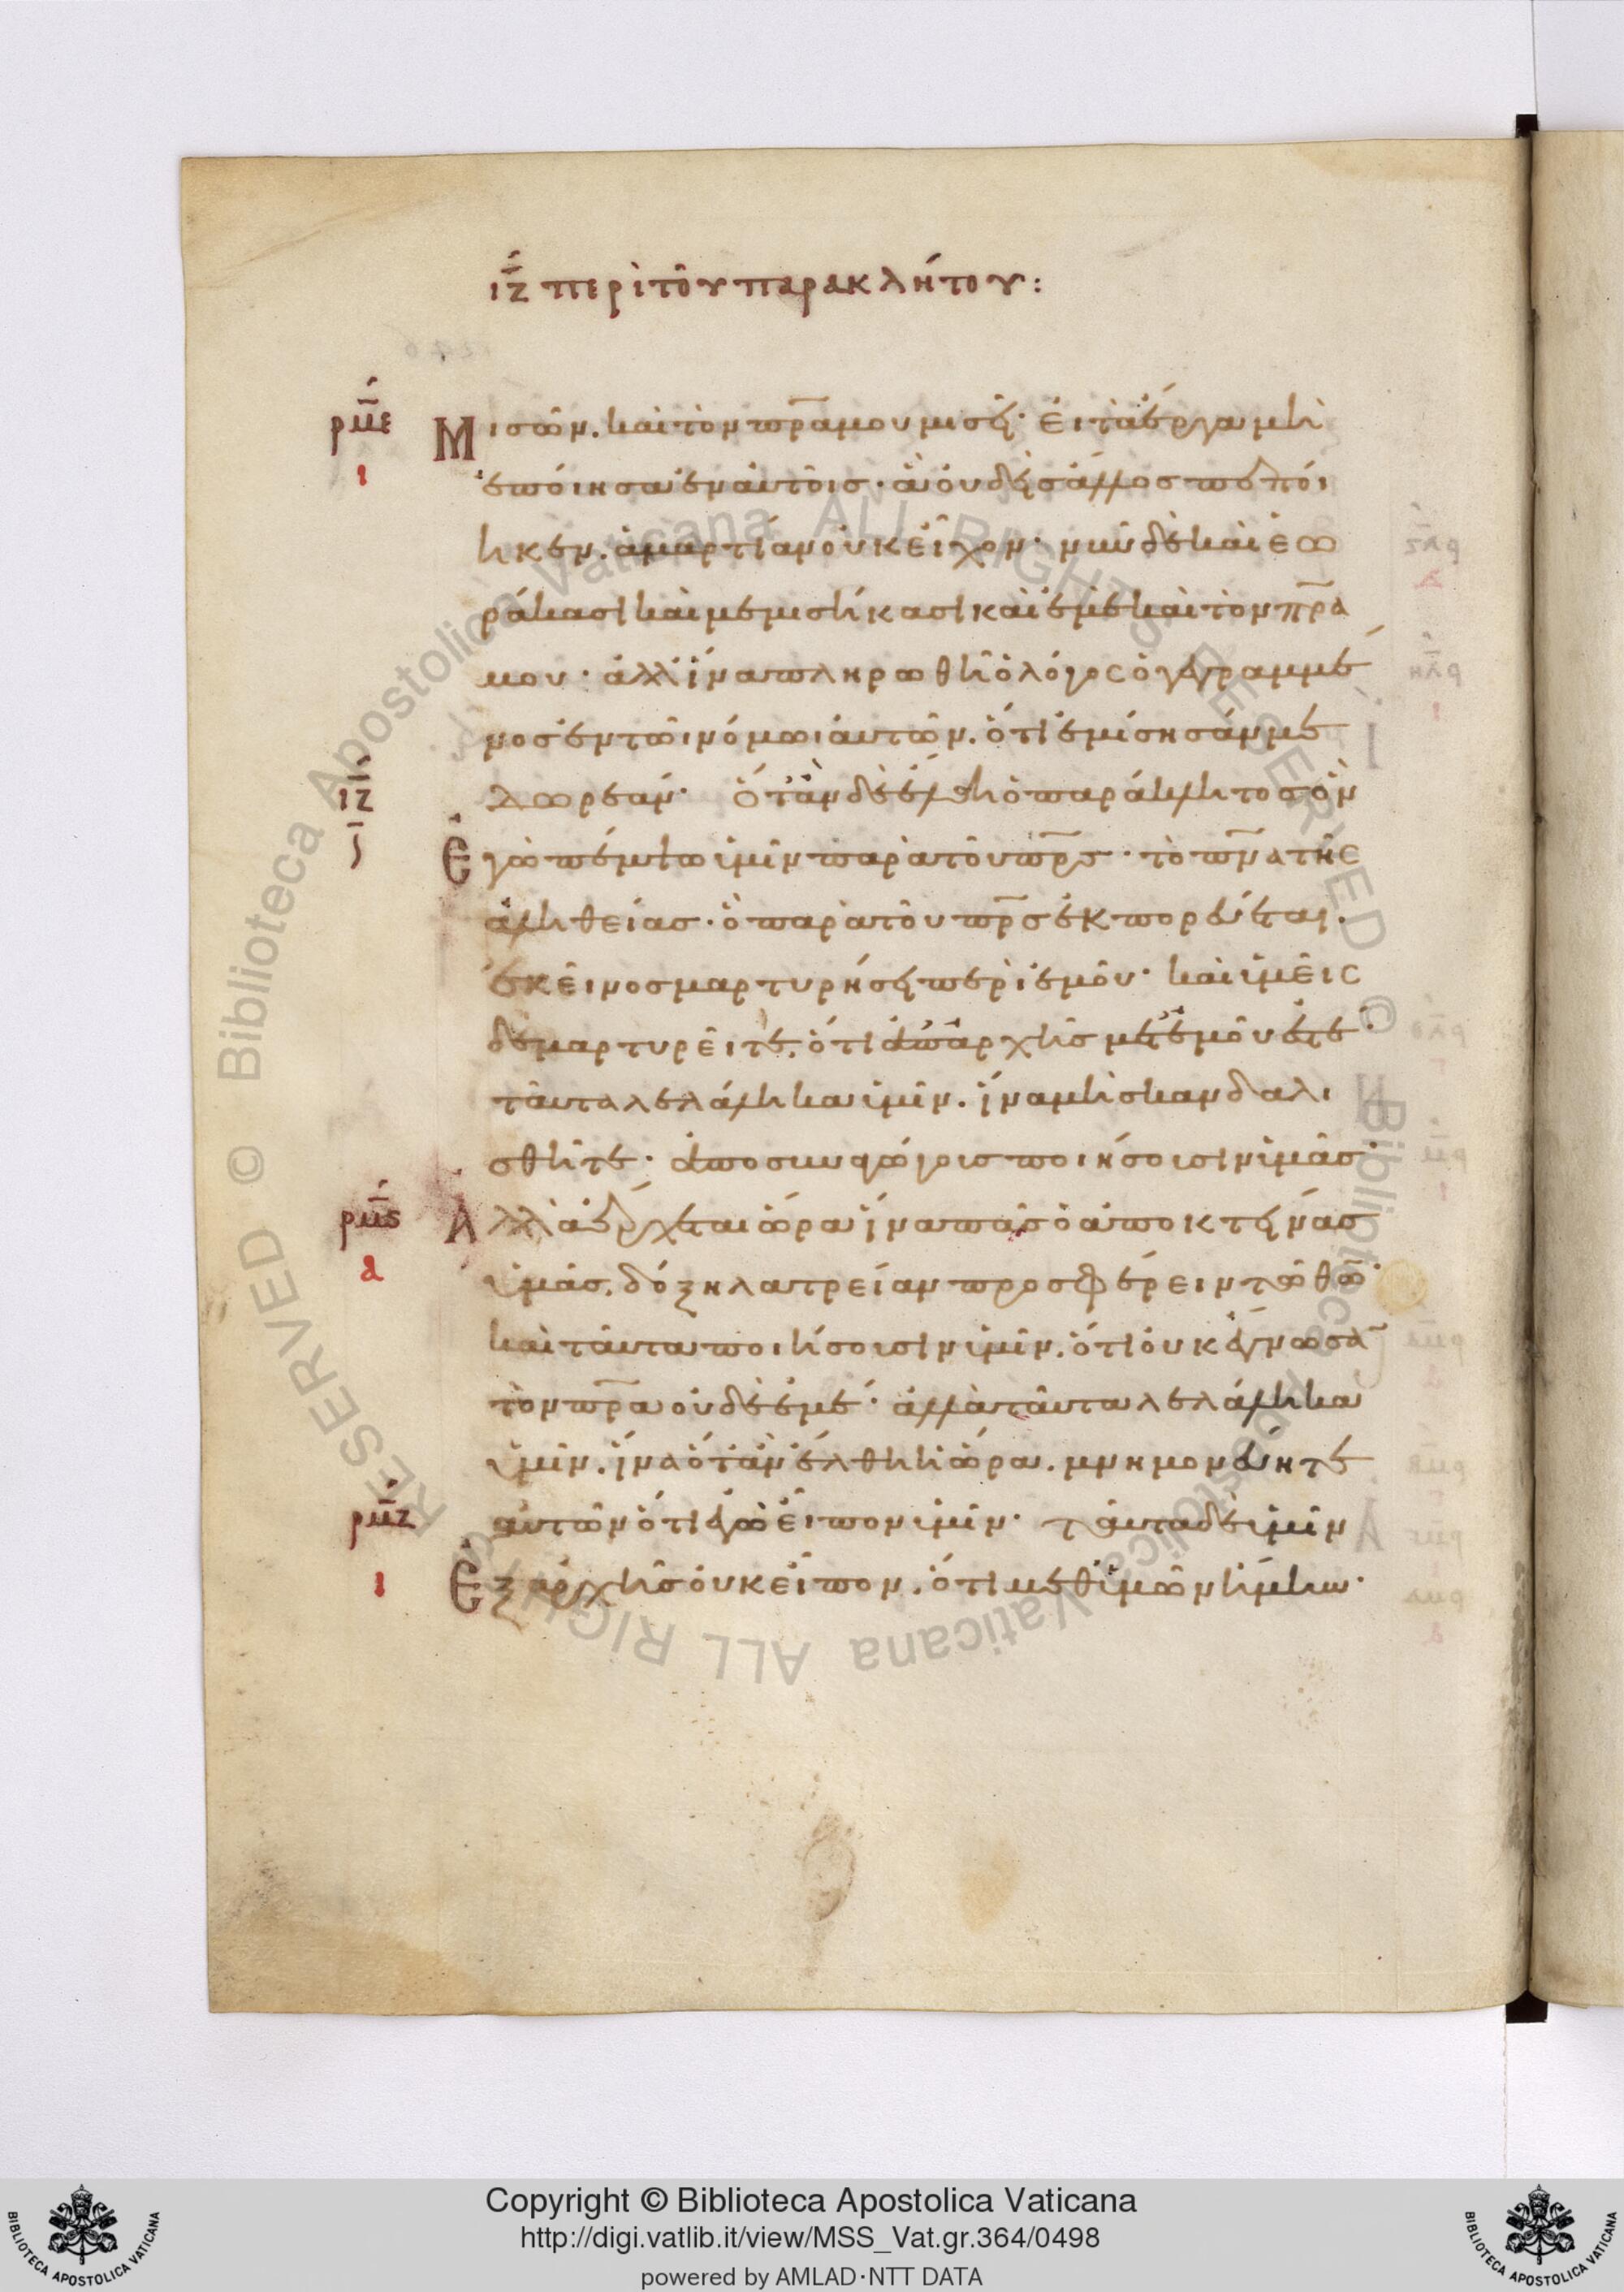 ιζ περὶ τοῦ παρακλήτου:
ρμε
Μισῶν. καὶ τὸν πρ̅α μου μισεῖ· εἰ τὰ ἔργα μὴ
ι
ἐποίησα ἐν αὐτοῖς· ἃ οὐδεὶς ἄλλος πεποί
ηκεν. ἁμαρτίαν οὐκ εἶχον· νῦν δὲ καὶ ἑω
ράκασι καὶ μεμισήκασι καὶ ἐμὲ καὶ τὸν πρ̅α
μου· ἀλλ' ἵνα πληρωθῆ ὁ λόγος ὁ γεγραμμέ
νος ἐν τῶι νόμωι αὐτῶν. ὅτι ἐμίσησάν με
ιζ
δωρεάν· ὅταν δὲ ἔλθη ὁ παράκλητος ὃν
Ἐγὼ πέμψω ὑμῖν παρὰ τοῦ πρ̅ς· τὸ πν̅α τῆς
ἀληθείας· ὃ παρὰ τοῦ πρ̅ς ἐκπορεύεται.
ἐκεῖνος μαρτυρήσει περὶ ἐμοῦ· καὶ ὑμεῖς
δὲ μαρτυρεῖτε. ὅτι ἀπ' ἀρχῆς μετ' ἐμοῦ ἐστε·
ταῦτα λελάληκα ὑμῖν. ἵνα μὴ σκανδαλι
σθῆτε· ἀποσυναγώγους ποιήσουσιν ὑμᾶς·
ρμς
Ἀλλ' ἔρχεται ὥρα ἵνα πᾶς ὁ ἀποκτείνας
α
ὑμᾶς. δόξη λατρείαν προσφέρειν τῶ θ̅ω·
καὶ ταῦτα ποιήσουσιν ὑμῖν. ὅτι οὐκ ἔγνωσα̅
τὸν πρ̅α οὐδὲ ἐμέ· ἀλλὰ ταῦτα λελάληκα
ὑμῖν. ἵνα ὅταν ἔλθη ἡ ὥρα. μνημονεύητε
ρμζ
αὐτῶν ὅτι ἐγὼ εἶπον ὑμῖν· ταῦτα δὲ ὑμῖν
ι
Ἐξ ἀρχῆς οὐκ εἶπον. ὅτι μεθ' ὑμῶν ἤμην·
Copyright © Biblioteca Apostolica Vaticana
http://digi.vatlib.it/view/MSS_Vat.gr.364/0498
powered by AMLAD·NTT DATA
BIBLIOTECA APOSTOLICA VATICANA
BIBLIOTECA APOSTOLICA VATICANA
© Biblioteca Apostolica Vaticana ALL RIGHTS RESERVED © Biblioteca Apostolica Vaticana ALL RIGHTS RESERVED